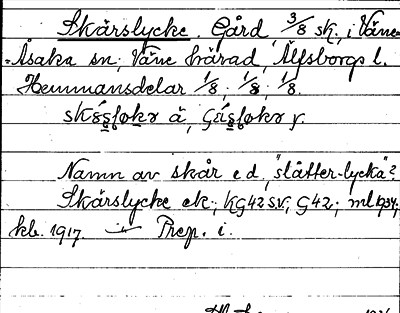 Skårslycke. Gård 3/8 sk. i Väne-
-Åsaka sn, Väne härad, Älfsborgs l.
Hemmansdelar 1/8, 1/8, 1/8.
Namn av skår e d, "slåtter-lycka"?
Skårslycke ek., KG42 s.v., G42, ml 1934,
kb. 1917. Prep. i.